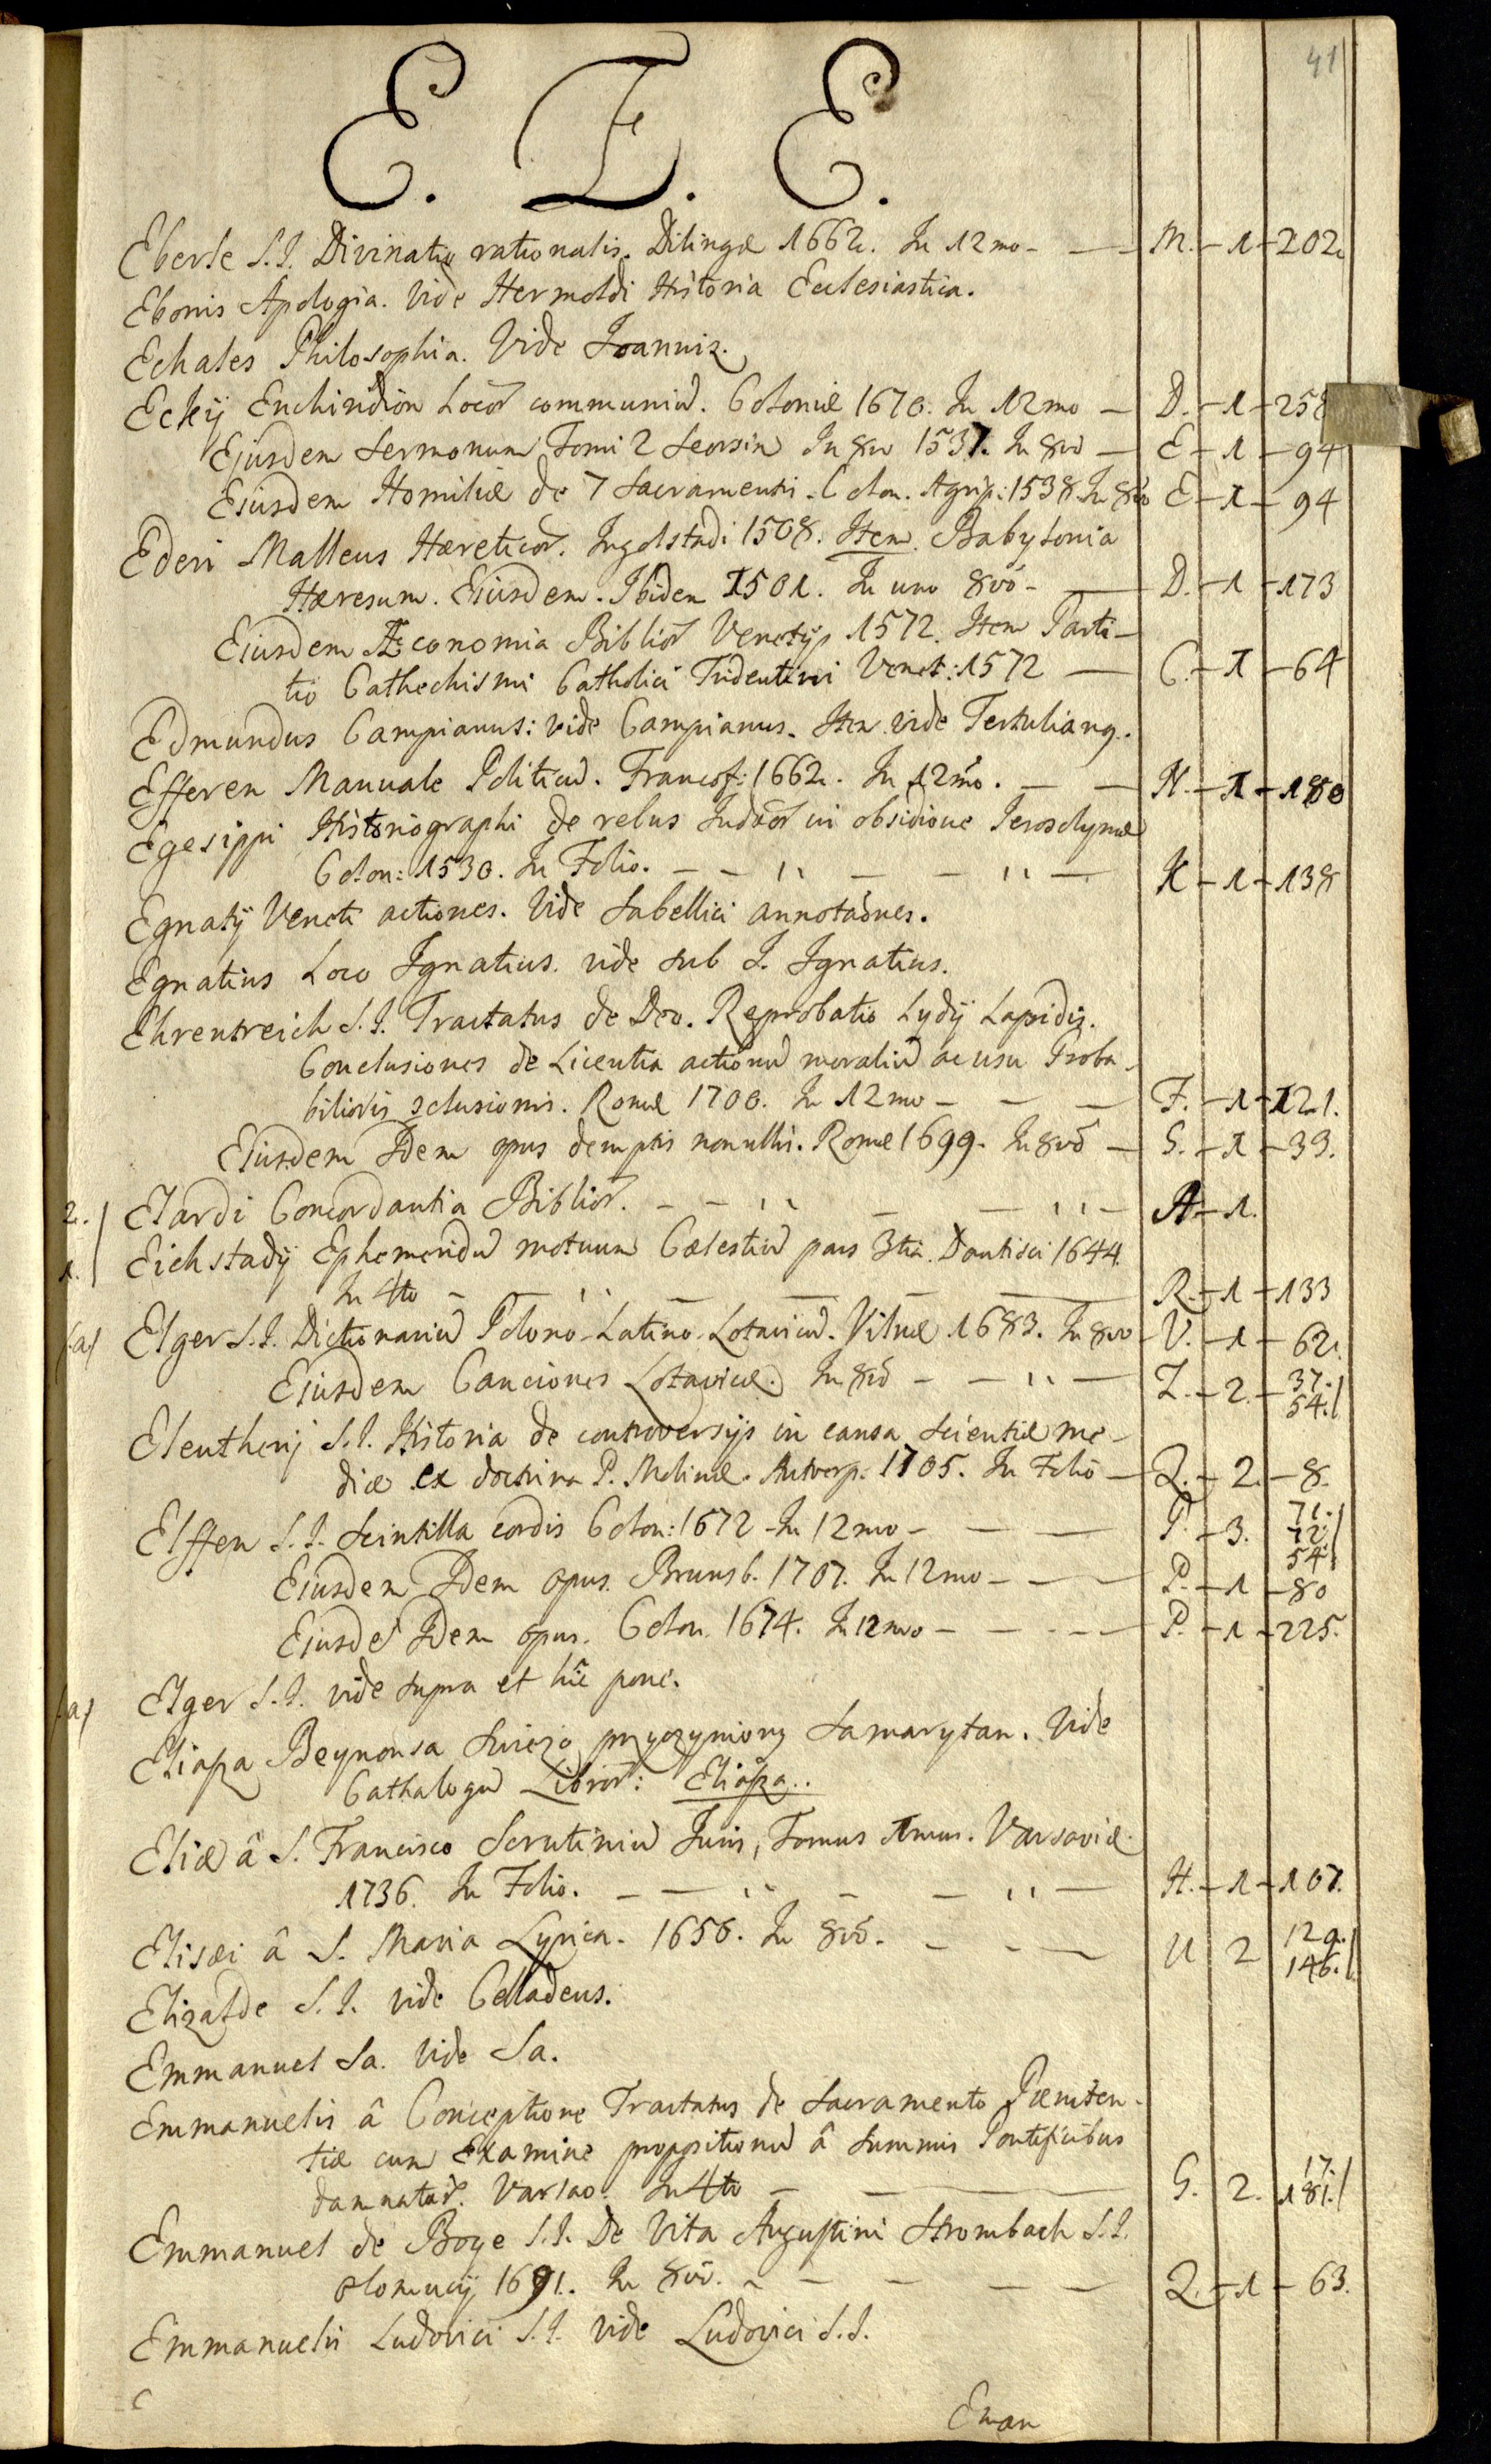 41
E. E. E.
Eberle S.I. Divinatio rationalis. Dilingæ 1662. In 12mo - — M. - 1 - 202
Ebonis Apologia. Vide Hermoldi Historia Ecclesiastica.
Echales Philosophia. Vide Joannis.
Eckij Enchiridion Locor̃ communiũ. Coloniæ 1670. In 12mo — D. - 1 - 258
Ejusdem Sermonum Tomi 2 Seorsim In 8vo 1537. In 8vo — E - 1 - 94
Eiusdem Homiliæ de 7 Sacramentis. Colon. Agrip: 1538. In 8vo E - 1 - 94
Ederi Malleus Hæreticor̃. Ingolstadi 1508. Item. Babylonia
Hæresum. Eiusdem. Ibidem 1501. In uno 8vo - — D. - 1 - 173
Eiusdem Æconomia Biblior̃ Venetijs 1572. Item Parti-
tio Cathechismi Catholici Tridentini Venet: 1572 — C. - 1 - 64
Edmundus Campianus: vide Campianus. Item vide Tertulianq.
Efferen Manuale Politicũ. Francof: 1662. In 12mo. — — N. - 1 - 180
Egesippi Historiographi de rebus Judæor̃ in obsidione Jerosolymæ
Colon: 1530. In Folio. - - '' - - '' - K - 1 - 138
Egnatij Veneti actiones. Vide Sabellici annotãones.
Egnatius Loco Ignatius. vide sub I. Ignatius.
Ehrentreich S.I. Tractatus de Deo. Reprobatio Lydij Lapidis.
Conclusiones de Licentia actionũ moraliũ ac usu Proba-
bilioris 3clusionis. Romæ 1700. In 12mo - — — F. - 1 - 121.
Eiusdem Idem opus demptis nonullis. Romæ 1699. In 8vo — S. - 1 - 39.
2./ Elardi Concordantia Biblior̃. - - '' - - '' - A - 1.
1./ Eichstadij Ephemeridũ motuum Cælestiũ pars 3tia. Dantisci 1644.
In 4to - '' - — — R. - 1 - 133
/a/ Elger S.I. Dictionariũ Polono-Latino-Lotaviciũ. Vilnæ 1683. In 8vo V. - 1 - 62.
Eiusdem Canciones Lotavicæ. In 8vo - - '' - Z. - 2. - 37. 54./
Eleutherij S.I. Historia de controversijs in causa scientiæ me-
diæ ex doctrina P. Molinæ. Antverp: 1705. In Folio — Q. - 2. - 8.
Elffen S.I. Scintilla cordis Colon: 1672 - In 12mo - — — P. - 3. 71. 72./ 54.
Eiusdem Idem opus. Brunsb. 1707. In 12mo - - — P. - 1 - 80
Eiusdẽ Idem opus. Colon. 1674. In 12mo - — - — P. - 1 - 225.
/a/ Elger S.I. vide supra et hîc pone.
Eliasza Beynonsa Swiezo przyczyniony Samarytan. Vide
Cathalogũ Libror̃: Eliasza..
Eliæ â S. Francisco Scrutiniũ Juris, Tomus 1mus. Varsaviæ.
1736. In Folio. - — '' - - '' - H. - 1 - 107.
Elisæi â S. Maria Lyrica. 1650. In 8vo. - - — U 2 129. 146./
Elizalde S.I. vide Celladeus.
Emmanuel Sa. Vide Sa.
Emmanuelis â Conceptione Tractatus de Sacramento Pæniten-
tiæ cum Examine propositionũ â Summis Pontificibus
damnatar̃. Varsao. In 4to - — — G. 2. 17. 181./
Emmanuel de Boye S.I. De Vita Augustini Strombach S.I.
Olomucij 1691. In 8vo. - - - - — Q. - 1 - 63.
Emmanuelis Ludovici S.I. Vide Ludovici S.I.
Eman